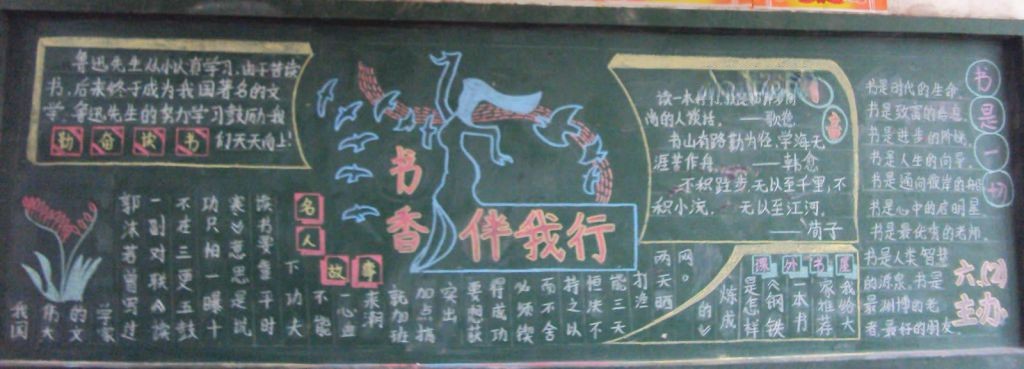 鲁迅先生从小认真学习,由于苦读
书,后来终于成为我国著名的文
学.鲁迅先生的努力学习鼓励我
们天天向上!
勤奋读书
书香
伴我行
读一本
尚的人谈话. ——歌德
书山有路勤为径,学海无
涯苦作舟. ——韩愈
不积跬步,无以至千里,不
积小流, 无以至江河。
——荀子
书是一切
书是时代的生命
书是致富的信息
书是进步的阶梯
书是人生的向导
书是通向彼岸的船
书是心中的启明星
书是最优秀的老师
书是人类智慧
的源泉,书是
最渊博的老
者,最好的朋友
六.(2)
主办
名人
故事
我国
伟大
的文
学家
郭沫若曾写过
一副对联《读
不在三更五鼓
功只怕一曝十
寒》意思是说
读书要重平时
下功大
不能
一心血
来潮
就加班
加点搞
突出
要想获
得成功
必须读
而不舍
持之以
恒决不
能三天
打渔
两天晒
网。
课外书屋
我给大
家推荐
一本书
《钢铁
是怎样
炼成
的》